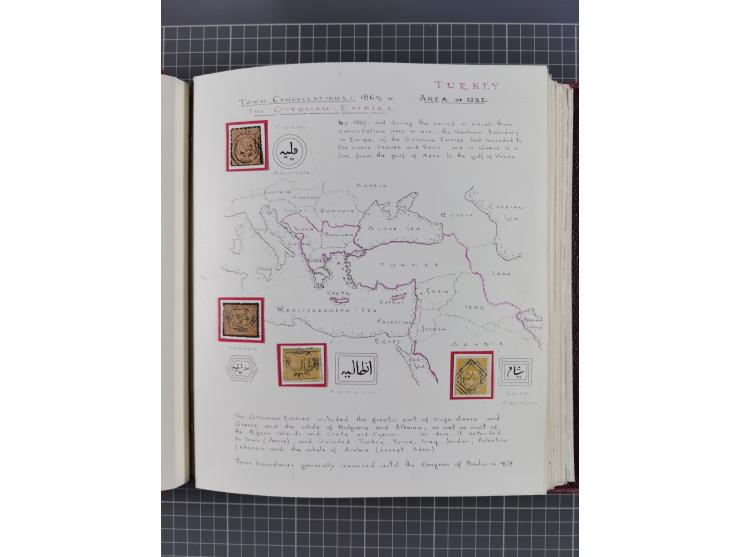 TURKEY
TOWN CANCELLATIONS: 1865 ~ AREA OF USE
THE OTTOMAN EMPIRE
By 1865, and during the period in which these
cancellations were in use, the Northern boundary
in Europe, of the Ottoman Empire had receded to
the rivers DANUBE and SAVA and in Greece to a
line from the gulf of ARTA to the gulf of VOLOS
RUSSIA
AUSTRIA
RUMANIA
RUSSIA
CASPIAN
SEA
BULGARIA
BLACK SEA
TURKEY
IRAN
SYRIA
CRETE
CYPRUS
IRAQ
MEDITERRANEAN SEA
PALESTINE
JORDAN
EGYPT
ARABIA
RED
SEA
انطاليه
شام
The Ottoman Empire included the greater part of Yugo-slavia and
Greece and the whole of Bulgaria and Albania, as well as most of
the Ægean islands and Crete and Cyprus. In Asia, it extended
to Iran (Persia) and included Turkey, Syria, Iraq, Jordan, Palestine
Lebanon and the whole of Arabia (except Aden)
These boundaries generally remained until the Congress of Berlin in 1878